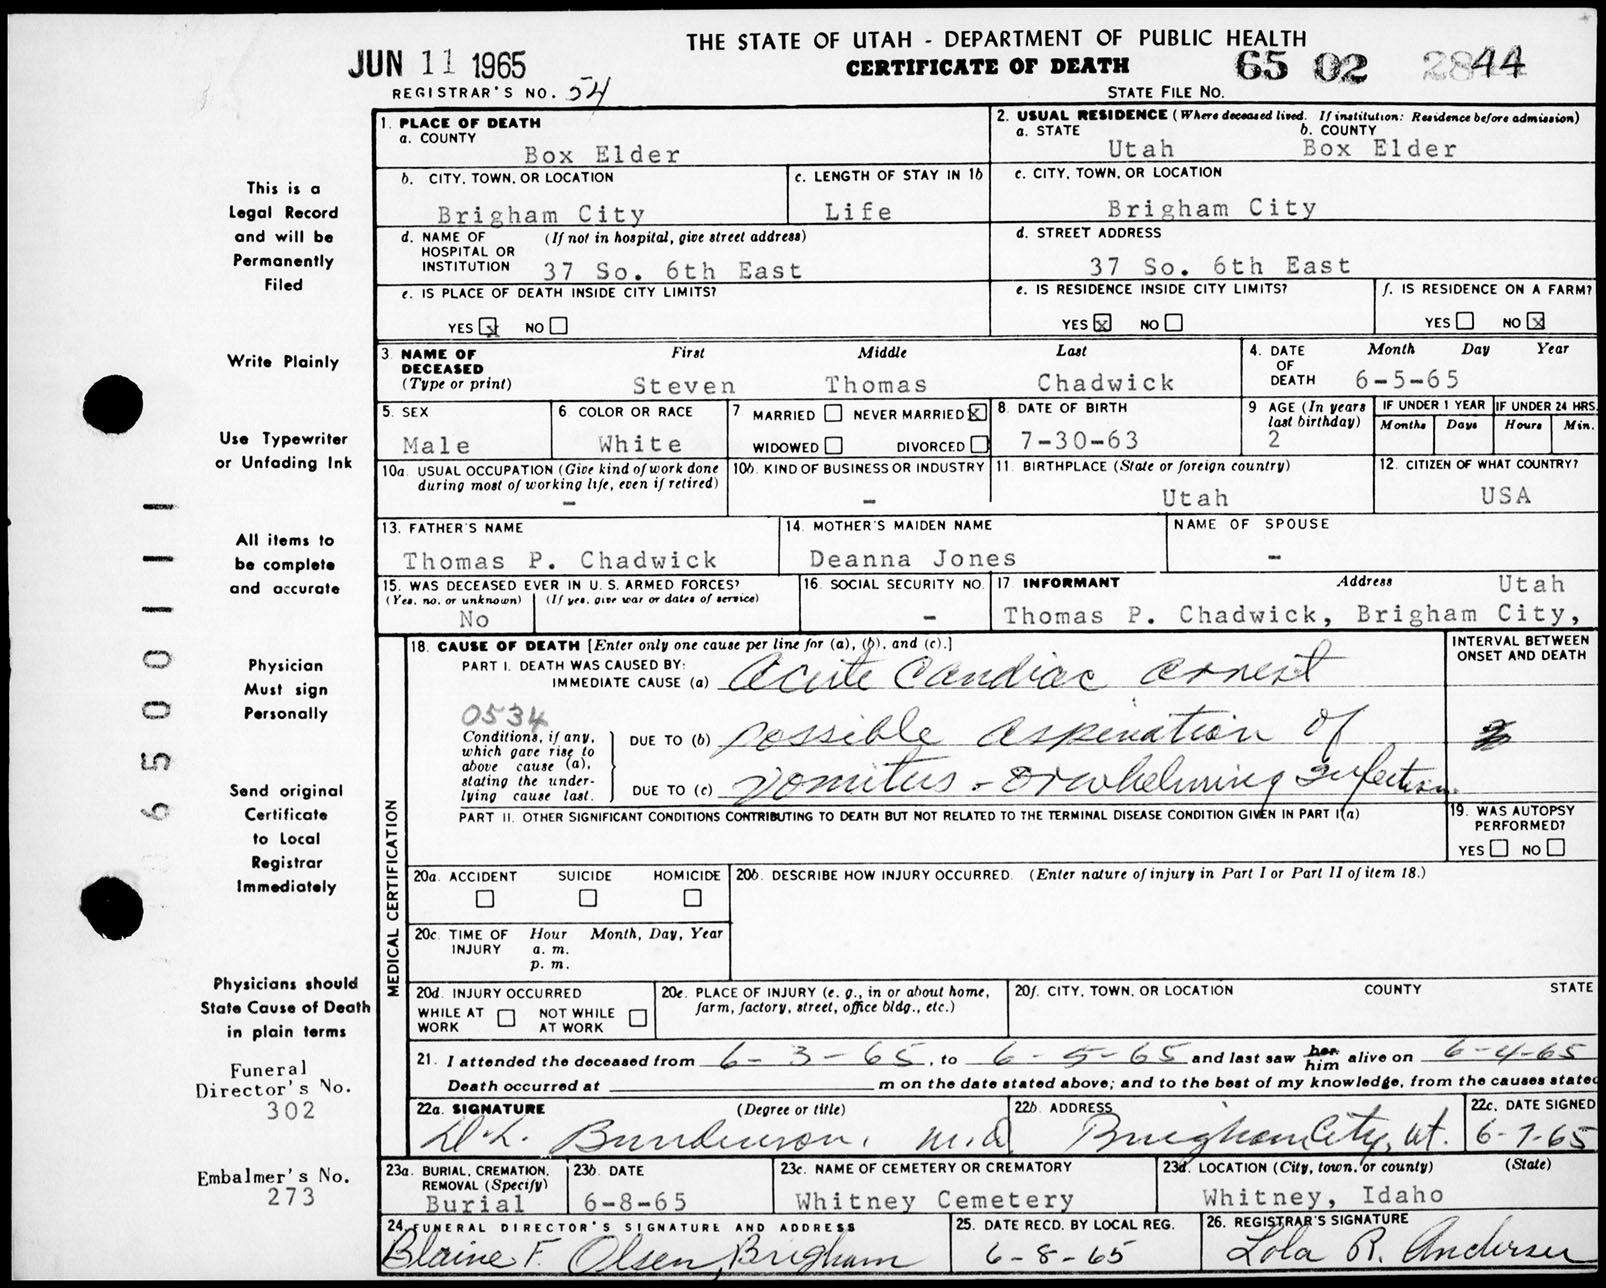 THE STATE OF UTAH - DEPARTMENT OF PUBLIC HEALTH
JUN 11 1965 CERTIFICATE OF DEATH 65 02 2844
REGISTRAR'S NO. 54 STATE FILE NO.
1. PLACE OF DEATH
a. COUNTY
Box Elder
2. USUAL RESIDENCE (Where deceased lived. If institution: Residence before admission)
a. STATE b. COUNTY
Utah Box Elder
b. CITY, TOWN, OR LOCATION
Brigham City
c. LENGTH OF STAY IN 1b
Life
c. CITY, TOWN, OR LOCATION
Brigham City
d. NAME OF (If not in hospital, give street address)
HOSPITAL OR
INSTITUTION 37 So. 6th East
d. STREET ADDRESS
37 So. 6th East
e. IS PLACE OF DEATH INSIDE CITY LIMITS?
YES x NO
e. IS RESIDENCE INSIDE CITY LIMITS?
YES x NO
f. IS RESIDENCE ON A FARM?
YES NO x
3. NAME OF First Middle Last
DECEASED
(Type or print) Steven Thomas Chadwick
4. DATE Month Day Year
OF
DEATH 6-5-65
5. SEX
Male
6. COLOR OR RACE
White
7. MARRIED NEVER MARRIED x
WIDOWED DIVORCED
8. DATE OF BIRTH
7-30-63
9. AGE (In years
last birthday)
2
IF UNDER 1 YEAR
Months Days
IF UNDER 24 HRS.
Hours Min.
10a. USUAL OCCUPATION (Give kind of work done
during most of working life, even if retired)
-
10b. KIND OF BUSINESS OR INDUSTRY
-
11. BIRTHPLACE (State or foreign country)
Utah
12. CITIZEN OF WHAT COUNTRY?
USA
13. FATHER'S NAME
Thomas P. Chadwick
14. MOTHER'S MAIDEN NAME
Deanna Jones
NAME OF SPOUSE
-
15. WAS DECEASED EVER IN U.S. ARMED FORCES?
(Yes, no, or unknown) (If yes, give war or dates of service)
No
16. SOCIAL SECURITY NO.
-
17. INFORMANT Address Utah
Thomas P. Chadwick, Brigham City,
MEDICAL CERTIFICATION
18. CAUSE OF DEATH [Enter only one cause per line for (a), (b), and (c).]
INTERVAL BETWEEN
ONSET AND DEATH
PART I. DEATH WAS CAUSED BY:
IMMEDIATE CAUSE (a) Acute Cardiac arrest
0534
Conditions, if any,
which gave rise to
above cause (a),
stating the under-
lying cause last.
DUE TO (b) possible aspiration of
DUE TO (c) vomitus - overwhelming infection
PART II. OTHER SIGNIFICANT CONDITIONS CONTRIBUTING TO DEATH BUT NOT RELATED TO THE TERMINAL DISEASE CONDITION GIVEN IN PART I(a)
19. WAS AUTOPSY
PERFORMED?
YES NO
20a. ACCIDENT SUICIDE HOMICIDE
20b. DESCRIBE HOW INJURY OCCURRED. (Enter nature of injury in Part I or Part II of item 18.)
20c. TIME OF Hour Month, Day, Year
INJURY a. m.
p. m.
20d. INJURY OCCURRED
WHILE AT NOT WHILE
WORK AT WORK
20e. PLACE OF INJURY (e. g., in or about home,
farm, factory, street, office bldg., etc.)
20f. CITY, TOWN, OR LOCATION COUNTY STATE
21. I attended the deceased from 6-3-65, to 6-5-65 and last saw her him alive on 6-4-65
Death occurred at m on the date stated above; and to the best of my knowledge, from the causes stated
22a. SIGNATURE (Degree or title)
D.L. Bunderson, M.D.
22b. ADDRESS
Brigham City, Ut.
22c. DATE SIGNED
6-7-65
23a. BURIAL, CREMATION,
REMOVAL (Specify)
Burial
23b. DATE
6-8-65
23c. NAME OF CEMETERY OR CREMATORY
Whitney Cemetery
23d. LOCATION (City, town, or county) (State)
Whitney, Idaho
24. FUNERAL DIRECTOR'S SIGNATURE AND ADDRESS
Blaine F. Olsen, Brigham
25. DATE RECD. BY LOCAL REG.
6-8-65
26. REGISTRAR'S SIGNATURE
Lola R. Andersen
This is a
Legal Record
and will be
Permanently
Filed
Write Plainly
Use Typewriter
or Unfading Ink
All items to
be complete
and accurate
Physician
Must sign
Personally
Send original
Certificate
to Local
Registrar
Immediately
Physicians should
State Cause of Death
in plain terms
Funeral
Director's No.
302
Embalmer's No.
273
6500111